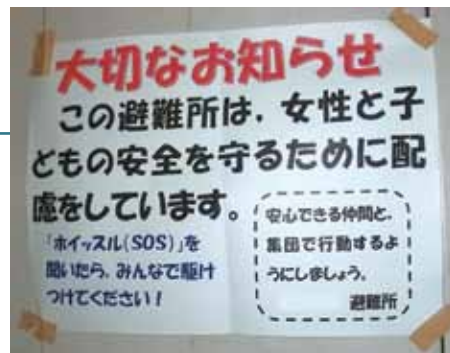 大切なお知らせ
この避難所は、女性と子
どもの安全を守るために配
慮をしています。
「ホイッスル(SOS)」を
聞いたら、みんなで駆け
つけてください！
安心できる仲間と、
集団で行動するよ
うにしましょう。
避難所